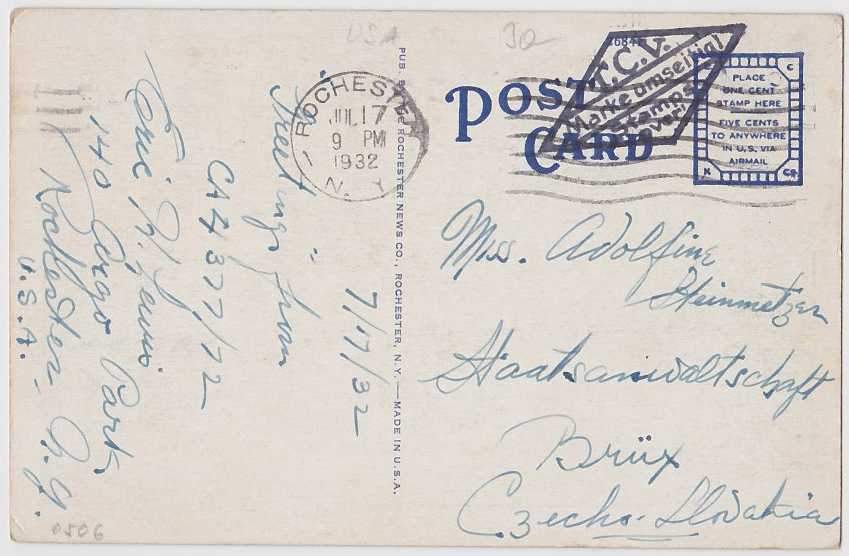 USA
ROCHESTER
JUL 17
9 PM
1932
N.Y.
POST
CARD
T.C.V.
Marke umseitig!
Stamps
over!
PLACE
ONE CENT
STAMP HERE
FIVE CENTS
TO ANYWHERE
IN U.S. VIA
AIRMAIL
Miss. Adolfine
Steinmetzer
Staatsanwaltschaft
Brüx
Czecho-Slovakia
ROCHESTER NEWS CO., ROCHESTER, N.Y. — MADE IN U.S.A.
7/17/32
"Greetings from"
CA 4377/72
Eric N. Lewis
140 Argo Park,
Rochester, N.Y.
U.S.A.
0506